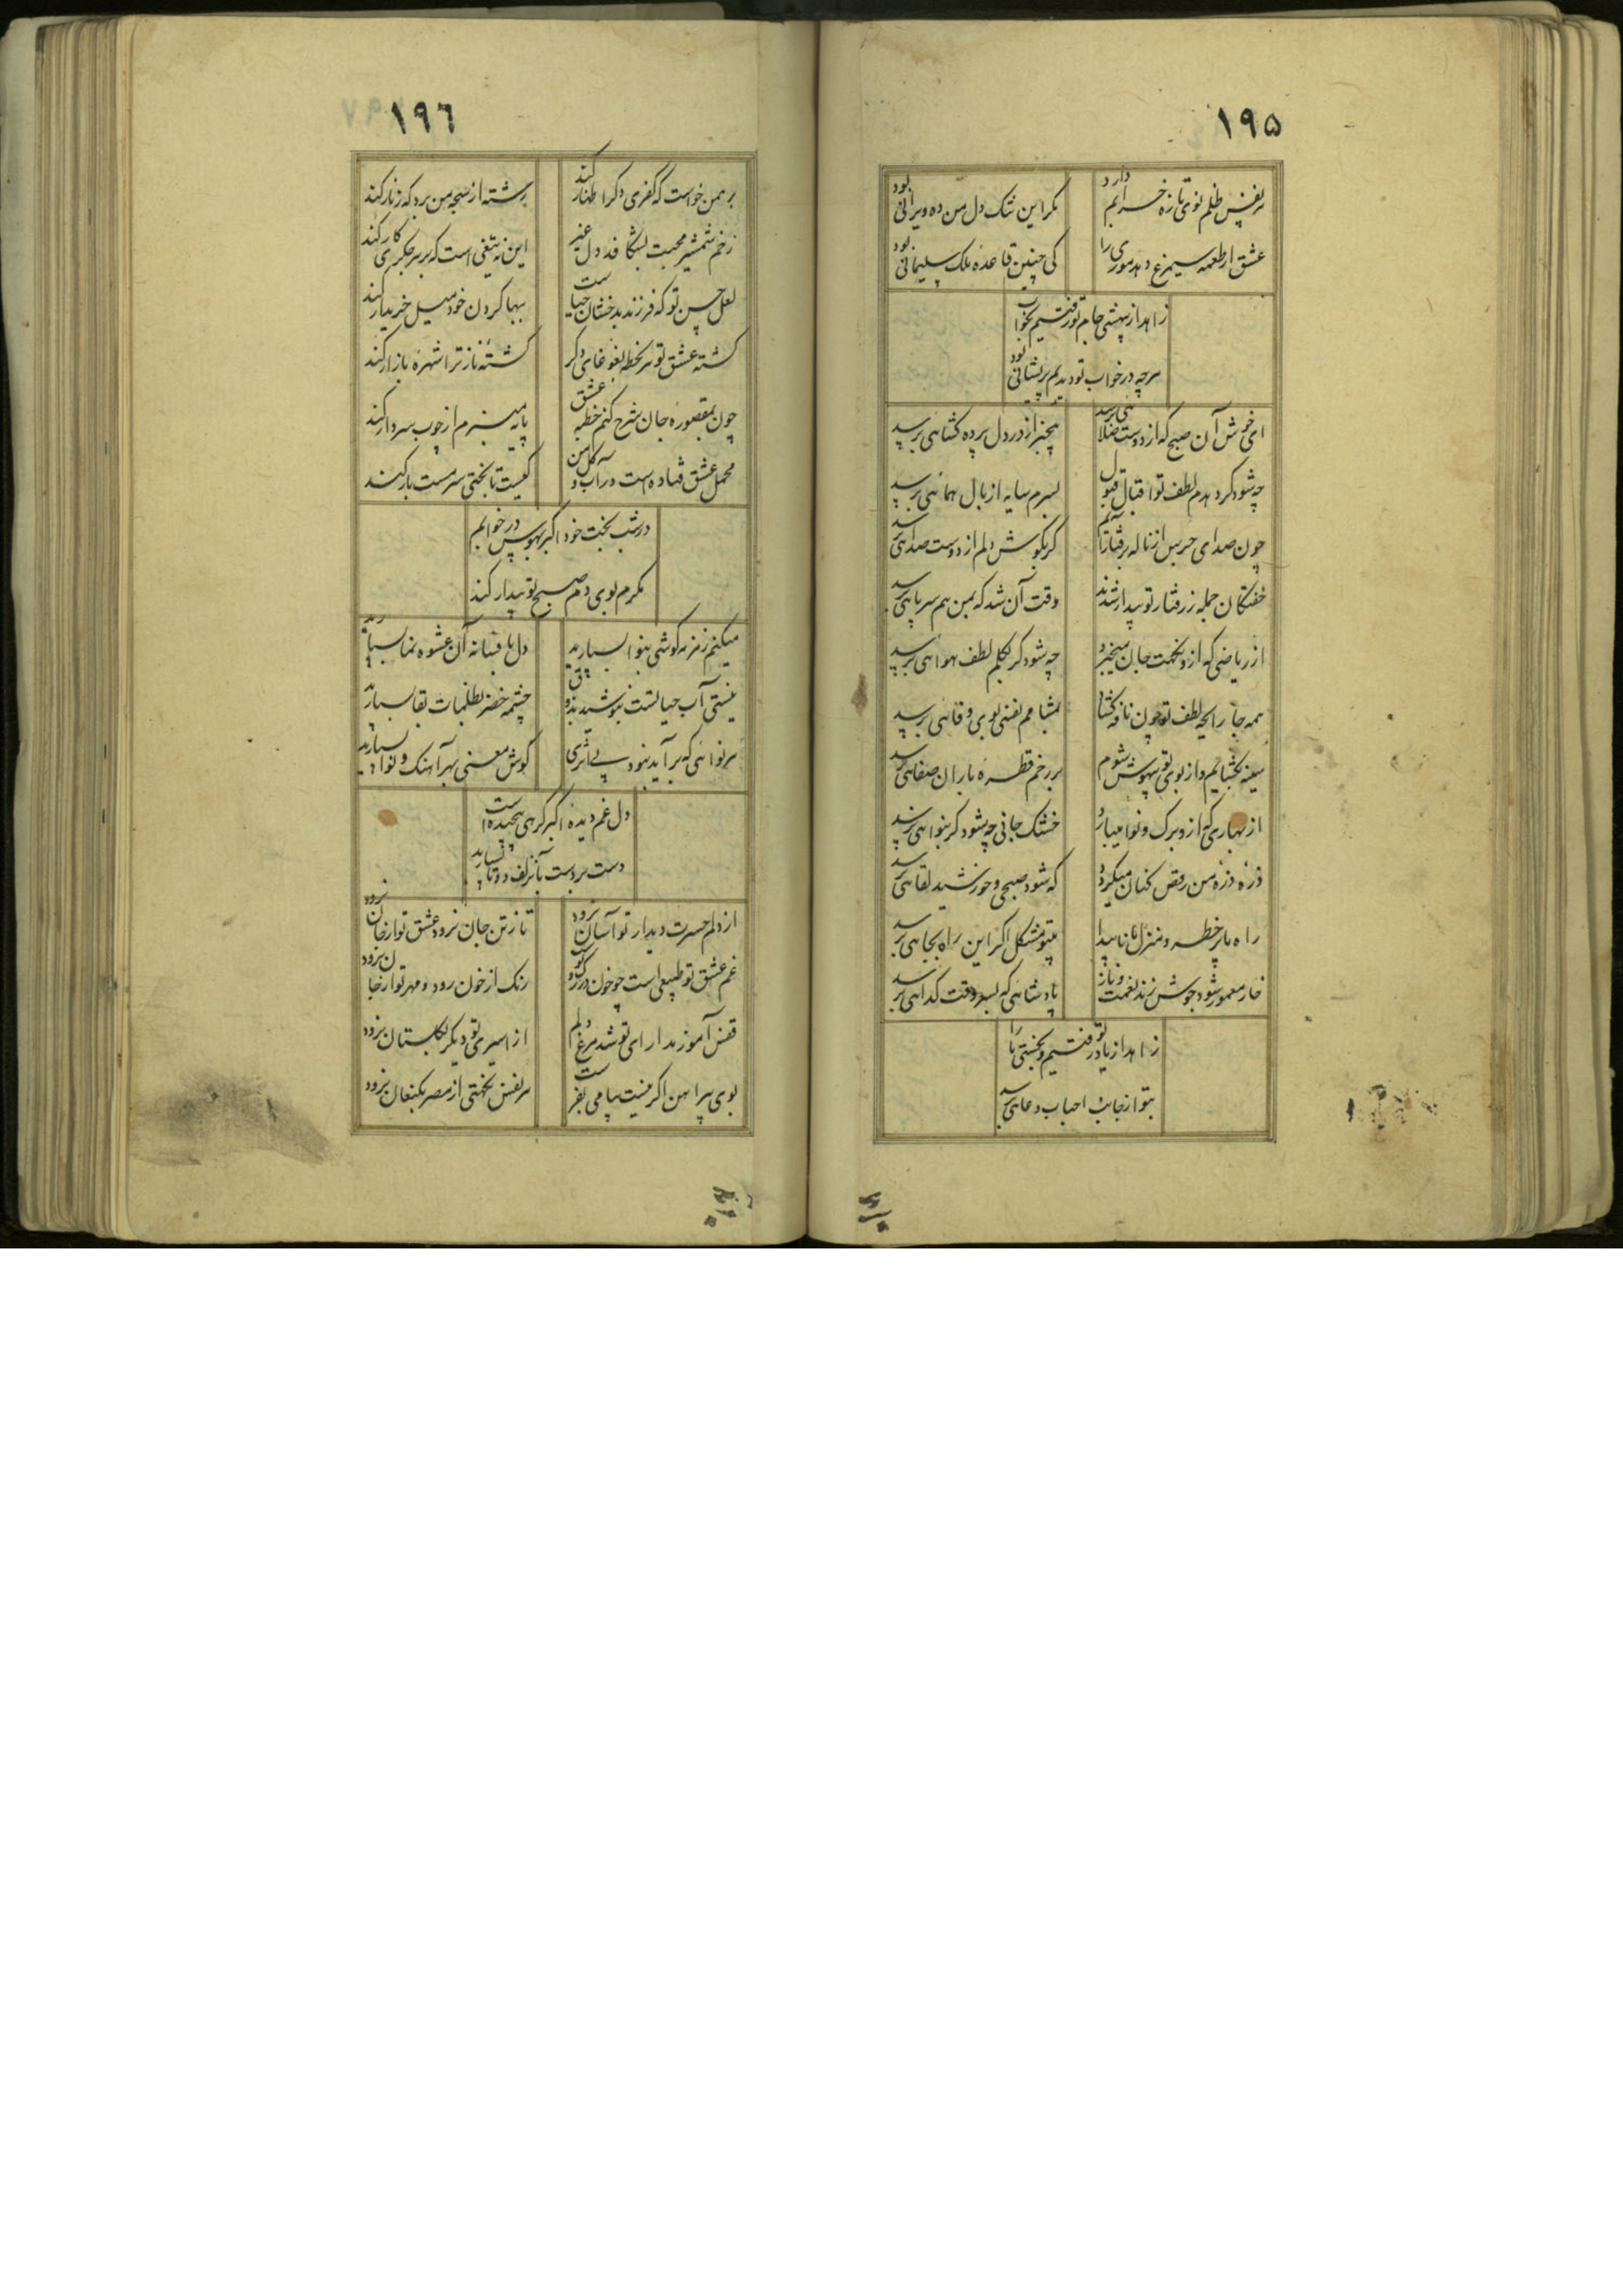 ١٩٥
هر نفس ظلم نوی تازه خرابم دارد
مگر این تنک دل من ده ویرانی بود
عشق ار طعمه سیمرغ دهد موری را
کی چنین قاعده ملک سلیمانی بود
زاهد از بیهشی جام تو رفتیم بخواب
هرچه در خواب تو دیدیم پریشانی بود
ای خوش آن صبح که از دوست صلائی برسد
بیخبر از در دل پرده کشائی برسد
چه شود کر دهدم لطف تو اقبال قبول
بسرم سایه از بال همائی برسد
چون صدای جرس از ناله برفتار آیم
کر بکوش دلم از دوست صدائی برسد
خفتکان جمله ز رفتار تو بیدار شدند
وقت آن شد که بمن هم سر پائی برسد
از ریاضی که ازو نکهت جان میخیزد
چه شود کر بکلم لطف هوائی برسد
همه جا رایحه لطف تو چون نافه کشا
بمشامم نفسی بوی وفائی برسد
سینه بکشایم و از بوی تو بیهوش شوم
بر رخم قطره باران صفائی برسد
از بهاری که ازو برک و نوا میبارد
خشک جانی چه شود کر بنوائی برسد
ذره ذره من رقص کنان میکردد
که شود صبحی و خورشید لقائی برسد
راه ما پرخطر و منزل ما ناپیدا
بتو مشکل اکر این راه بجائی برسد
پادشاهی که بسر وقت کدائی برسد
زاهد از یاد تو رفتیم و بخستی ما را
بتو از جانب احباب دعائی برسد
١٩٦
برهمن خواست که کفری دکر اظهار کند
رشته از سبحه من برد که زنار کند
زخم شمشیر محبت بشکافد دل غیر
این نه تیغی است که بر هر جکری کار کند
لعل حسن تو که فرزند بدخشان حیاست
ببها کردن خود میل خریدار کند
کشته عشق تو هر لحظه بغوغای دکر
کشته ناز ترا شهره بازار کند
چون بمقصوره جان شرح کنم خطبه عشق
پایه منبرم از چوب سر دار کند
محمل عشق فتاده است در آب و کل من
کیست تا بختی سرمست بار کند
در شب بخت خود اکبر بهوس در خوابم
مکرم بوی دم صبح تو بیدار کند
میکنم زمزمه کوشی بنوا بسپارید
دل بافسانه آن عشوه نما بسپارید
نیستی آب حیاتست بنوشید بذوق
چشمه خضر بظلمات بقا بسپارید
هر نوائی که برآید نبود بی اثری
کوش معنی بهر آهنک و نوا بسپارید
دل غم دیده اکبر کرهی پیچیده است
دست بر دست بآن زلف دوتا بسپارید
از دلم حسرت دیدار تو آسان نرود
تا ز تن جان نرود عشق تو از جان نرود
غم عشق تو طبیعی است چو خون در رک و پی
رنک از خون رود و مهر تو از جان نرود
قفس آموز مدارای تو شد مرغ دلم
از اسیری تو دیکر بکلستان نرود
بوی پیراهن اکر نیست پیامی بفرست
هر نفس نکهتی از مصر بکنعان نرود